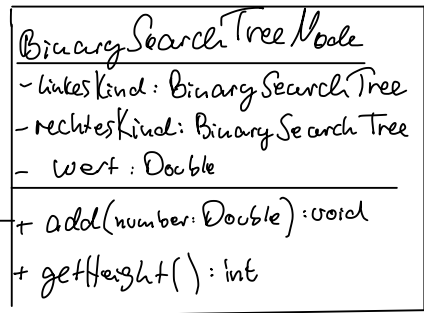 BinarySearchTreeNode
- linkesKind: BinarySearchTree
- rechtesKind: BinarySearchTree
- wert: Double
+ add(number: Double): void
+ getHeight(): int